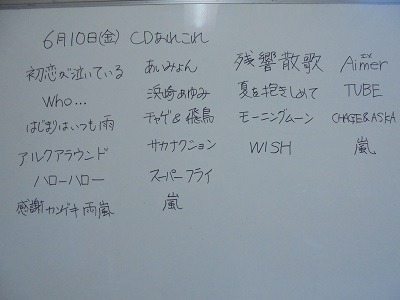 6月10日(金) CDあれこれ
初恋が泣いている あいみょん
Who... 浜崎あゆみ
はじまりはいつも雨 チャゲ&飛鳥
アルクアラウンド サカナクション
ハローハロー スーパーフライ
感謝カンゲキ雨嵐 嵐
残響散歌 Aimer
夏を抱きしめて TUBE
モーニングムーン CHAGE&ASKA
WISH 嵐